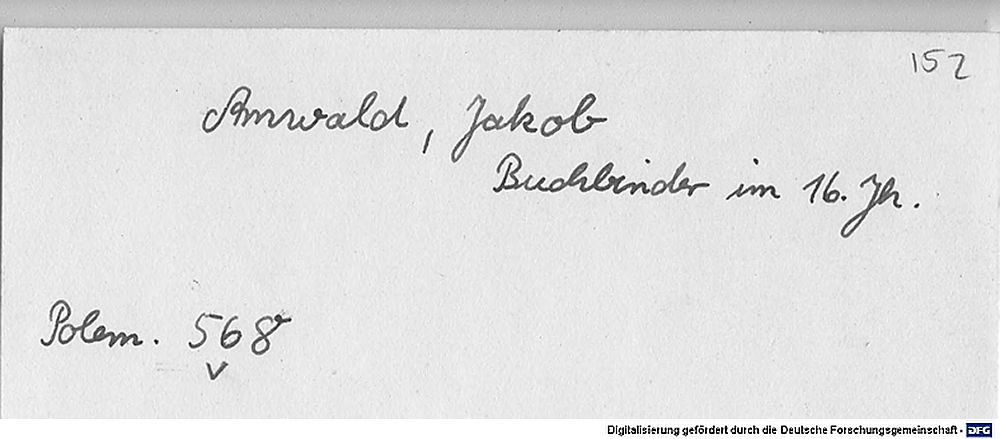 152
Amwald, Jakob
Buchbinder im 16. Jh.
Polem. 568
Digitalisierung gefördert durch die Deutsche Forschungsgemeinschaft - DFG